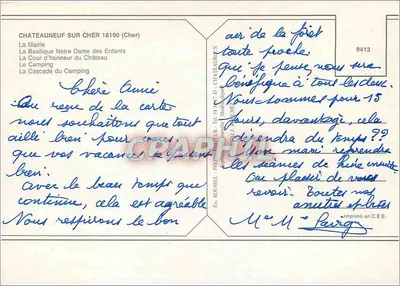 CHATEAUNEUF SUR CHER 18190 (Cher)
La Mairie
La Basilique Notre Dame des Enfants
La Cour d'honneur du Château
Le Camping
La Cascade du Camping
Chère Annie
reçu de la carte
nous souhaitons que tout
aille bien pour vous,
que vos vacances se passent
bien.
avec le beau temps qui
continue, cela est agréable
Nous respirons le bon
air de la forêt
toute proche
que je pense, nous sera
bénéfique à tous les deux.
Nous sommes pour 15
jours, davantage, cela
dépendra du temps ??
Mon mari reprendra
les séances de
Au plaisir de vous
revoir. Toutes nos
amitiés et bises
9412
Imprimé en C.E.E.